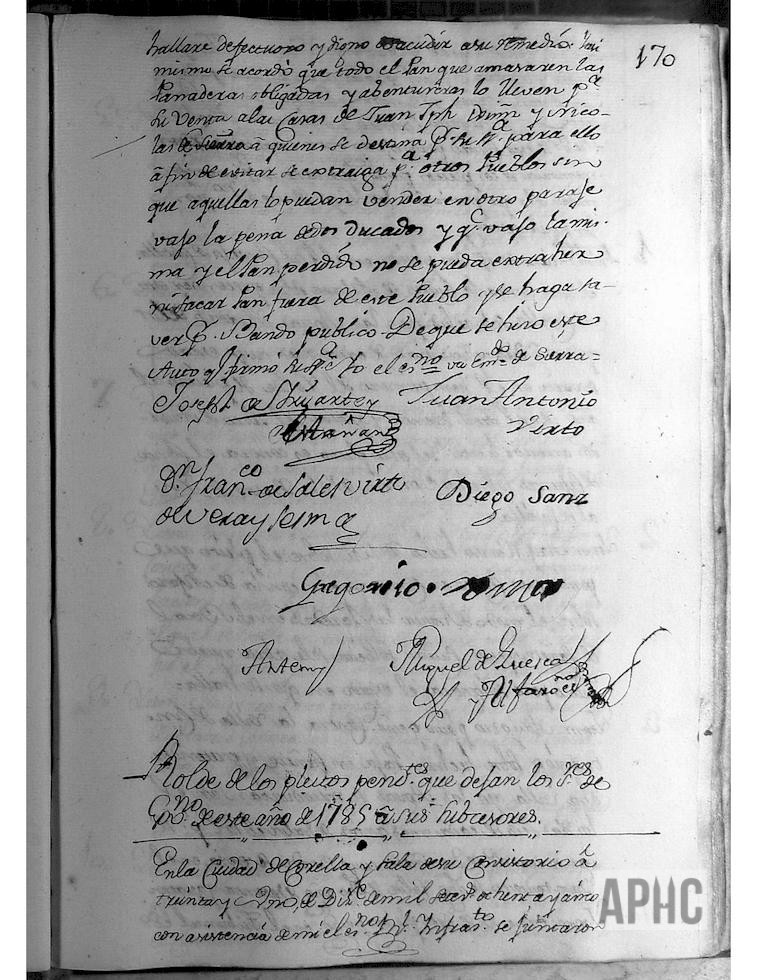 170
hallare defectuoso y digno de acudir a su remedio. Assi
mismo se acordò que todo el Pan que amasaren las
Panaderas obligadas y abentureras lo lleven p.ª
su venta a las Casas de Juan Jph y Nico-
las de Sierra â quienes se destina p.r su M.ª para ello
â fin de evitar se extraiga p.ª otros Pueblos sin
que aquellas lo puedan vender en otro paraje
vajo la pena de dos ducados y q.e vajo la mis-
ma y el Pan perdido no se pueda extraher
ni sacar Pan fuera de este Pueblo y se haga sa-
ver p.r Bando publico. De que se hizo este
Auto q firmò su M.ª Yo el es.no va Em.do de Sierra=
Joseph de Juan Antonio
Virto
D.n Fran.co de Sales Virto Diego Sanz
de Vera y Lesma
Gregorio
Antemy Miguel de Huesca
y Alfaro es.no
Rolde de los pleitos pend.tes que dejan los S.res de
Gov.no de este año de 1785 â sus subcesores.
En la Ciudad de Corella y Sala de su Consistorio â
treinta y Uno de Diz.e de mil setec.s ochenta y cinco
con asistencia de mi el es.no R.l Infras.to se juntaron
APHC